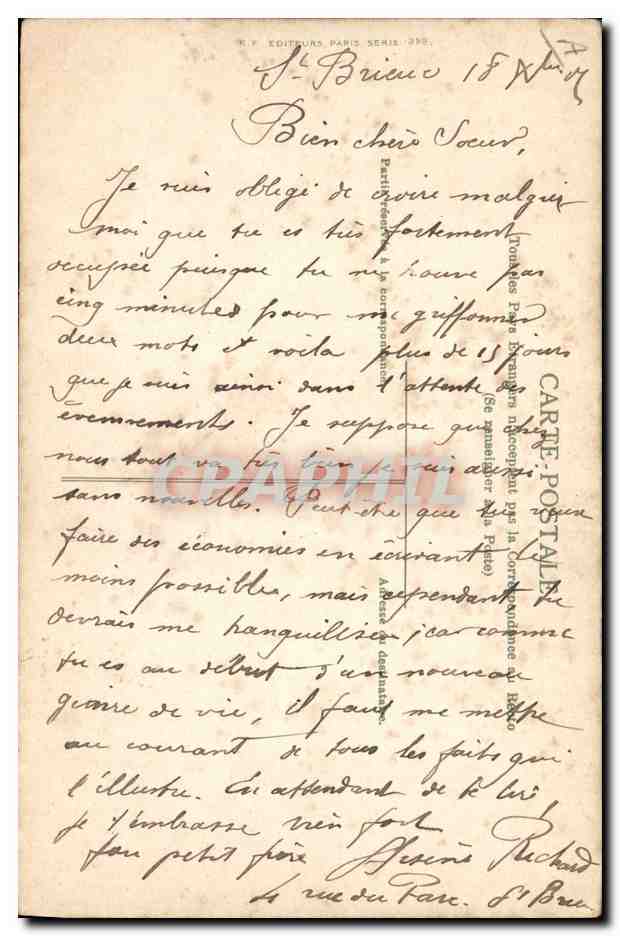 K.F. EDITEURS, PARIS SERIE 399.
St Brieuc 18 Xbre
Bien chère Soeur,
Je suis obligé de croire malgré
moi que tu es très fortement
occupée puisque tu ne trouve pas
cinq minutes pour me griffonner
deux mots et voila plus de 15 jours
que je suis ainsi dans l'attente des
évenements. Je suppose que chez
nous tout va très bien je suis aussi
sans nouvelles. Peut etre que tu veux
faire des économies en écrivant le
moins possible, mais cependant tu
devrais me tranquilliser, car comme
tu es au début d'un nouveau
genre de vie, il faut me mettre
au courant de tous les faits qui
l'illustre. En attendant de te lire,
je t'embrasse bien fort
Ton petit frère Richard
4 rue du Parc. St Brieuc
CARTE-POSTALE
Tous les Pays Etrangers n'acceptent pas la Correspondance au Recto
(Se renseigner à la Poste)
Partie réservée à la correspondance
Adresse du destinataire.
CPAPHIL